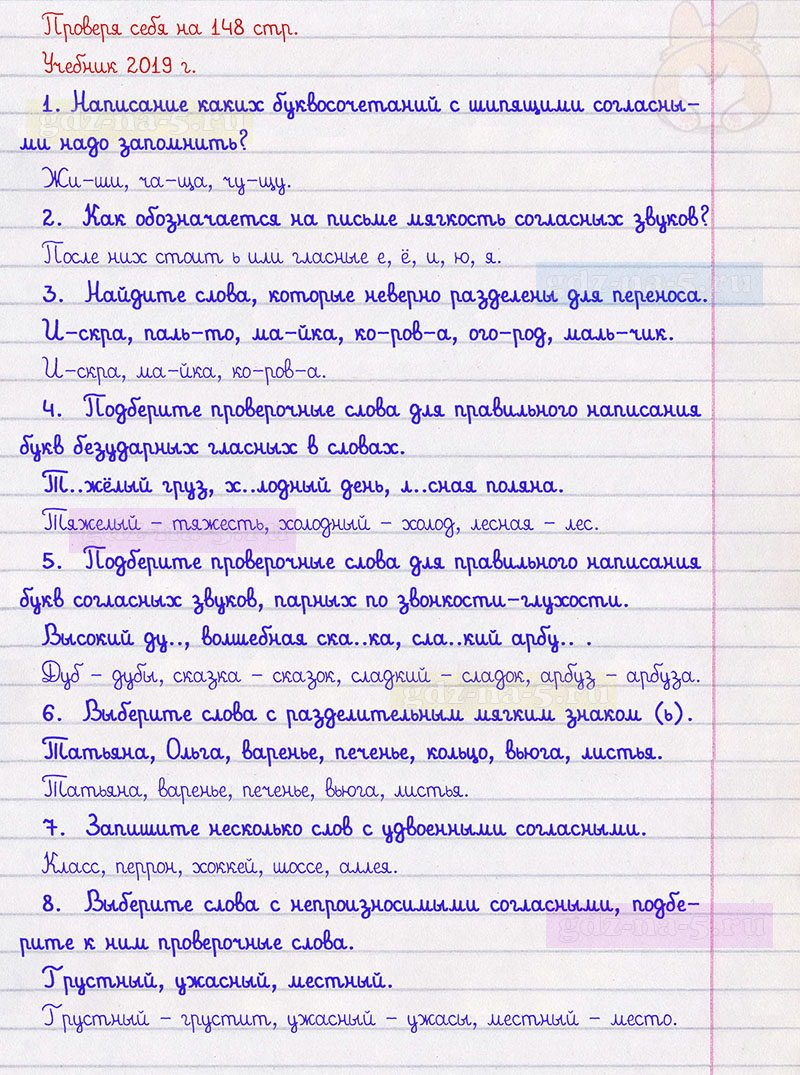 Проверя себя на 148 стр.
Учебник 2019 г.
1. Написание каких буквосочетаний с шипящими согласны-
ми надо запомнить?
Жи-ши, ча-ща, чу-щу.
2. Как обозначается на письме мягкость согласных звуков?
После них стоит ь или гласные е, ё, и, ю, я.
3. Найдите слова, которые неверно разделены для переноса.
И-скра, паль-то, ма-йка, ко-ров-а, ого-род, маль-чик.
И-скра, ма-йка, ко-ров-а.
4. Подберите проверочные слова для правильного написания
букв безударных гласных в словах.
Т..жёлый груз, х..лодный день, л..сная поляна.
Тяжелый – тяжесть, холодный – холод, лесная – лес.
5. Подберите проверочные слова для правильного написания
букв согласных звуков, парных по звонкости-глухости.
Высокий ду.., волшебная ска..ка, сла..кий арбу.. .
Дуб – дубы, сказка – сказок, сладкий – сладок, арбуз – арбуза.
6. Выберите слова с разделительным мягким знаком (ь).
Татьяна, Ольга, варенье, печенье, кольцо, вьюга, листья.
Татьяна, варенье, печенье, вьюга, листья.
7. Запишите несколько слов с удвоенными согласными.
Класс, перрон, хоккей, шоссе, аллея.
8. Выберите слова с непроизносимыми согласными, подбе-
рите к ним проверочные слова.
Грустный, ужасный, местный.
Грустный – грустит, ужасный – ужасы, местный – место.
gdz-na-5.ru
gdz-na-5.ru
gdz-na-5.ru
gdz-na-5.ru
gdz-na-5.ru